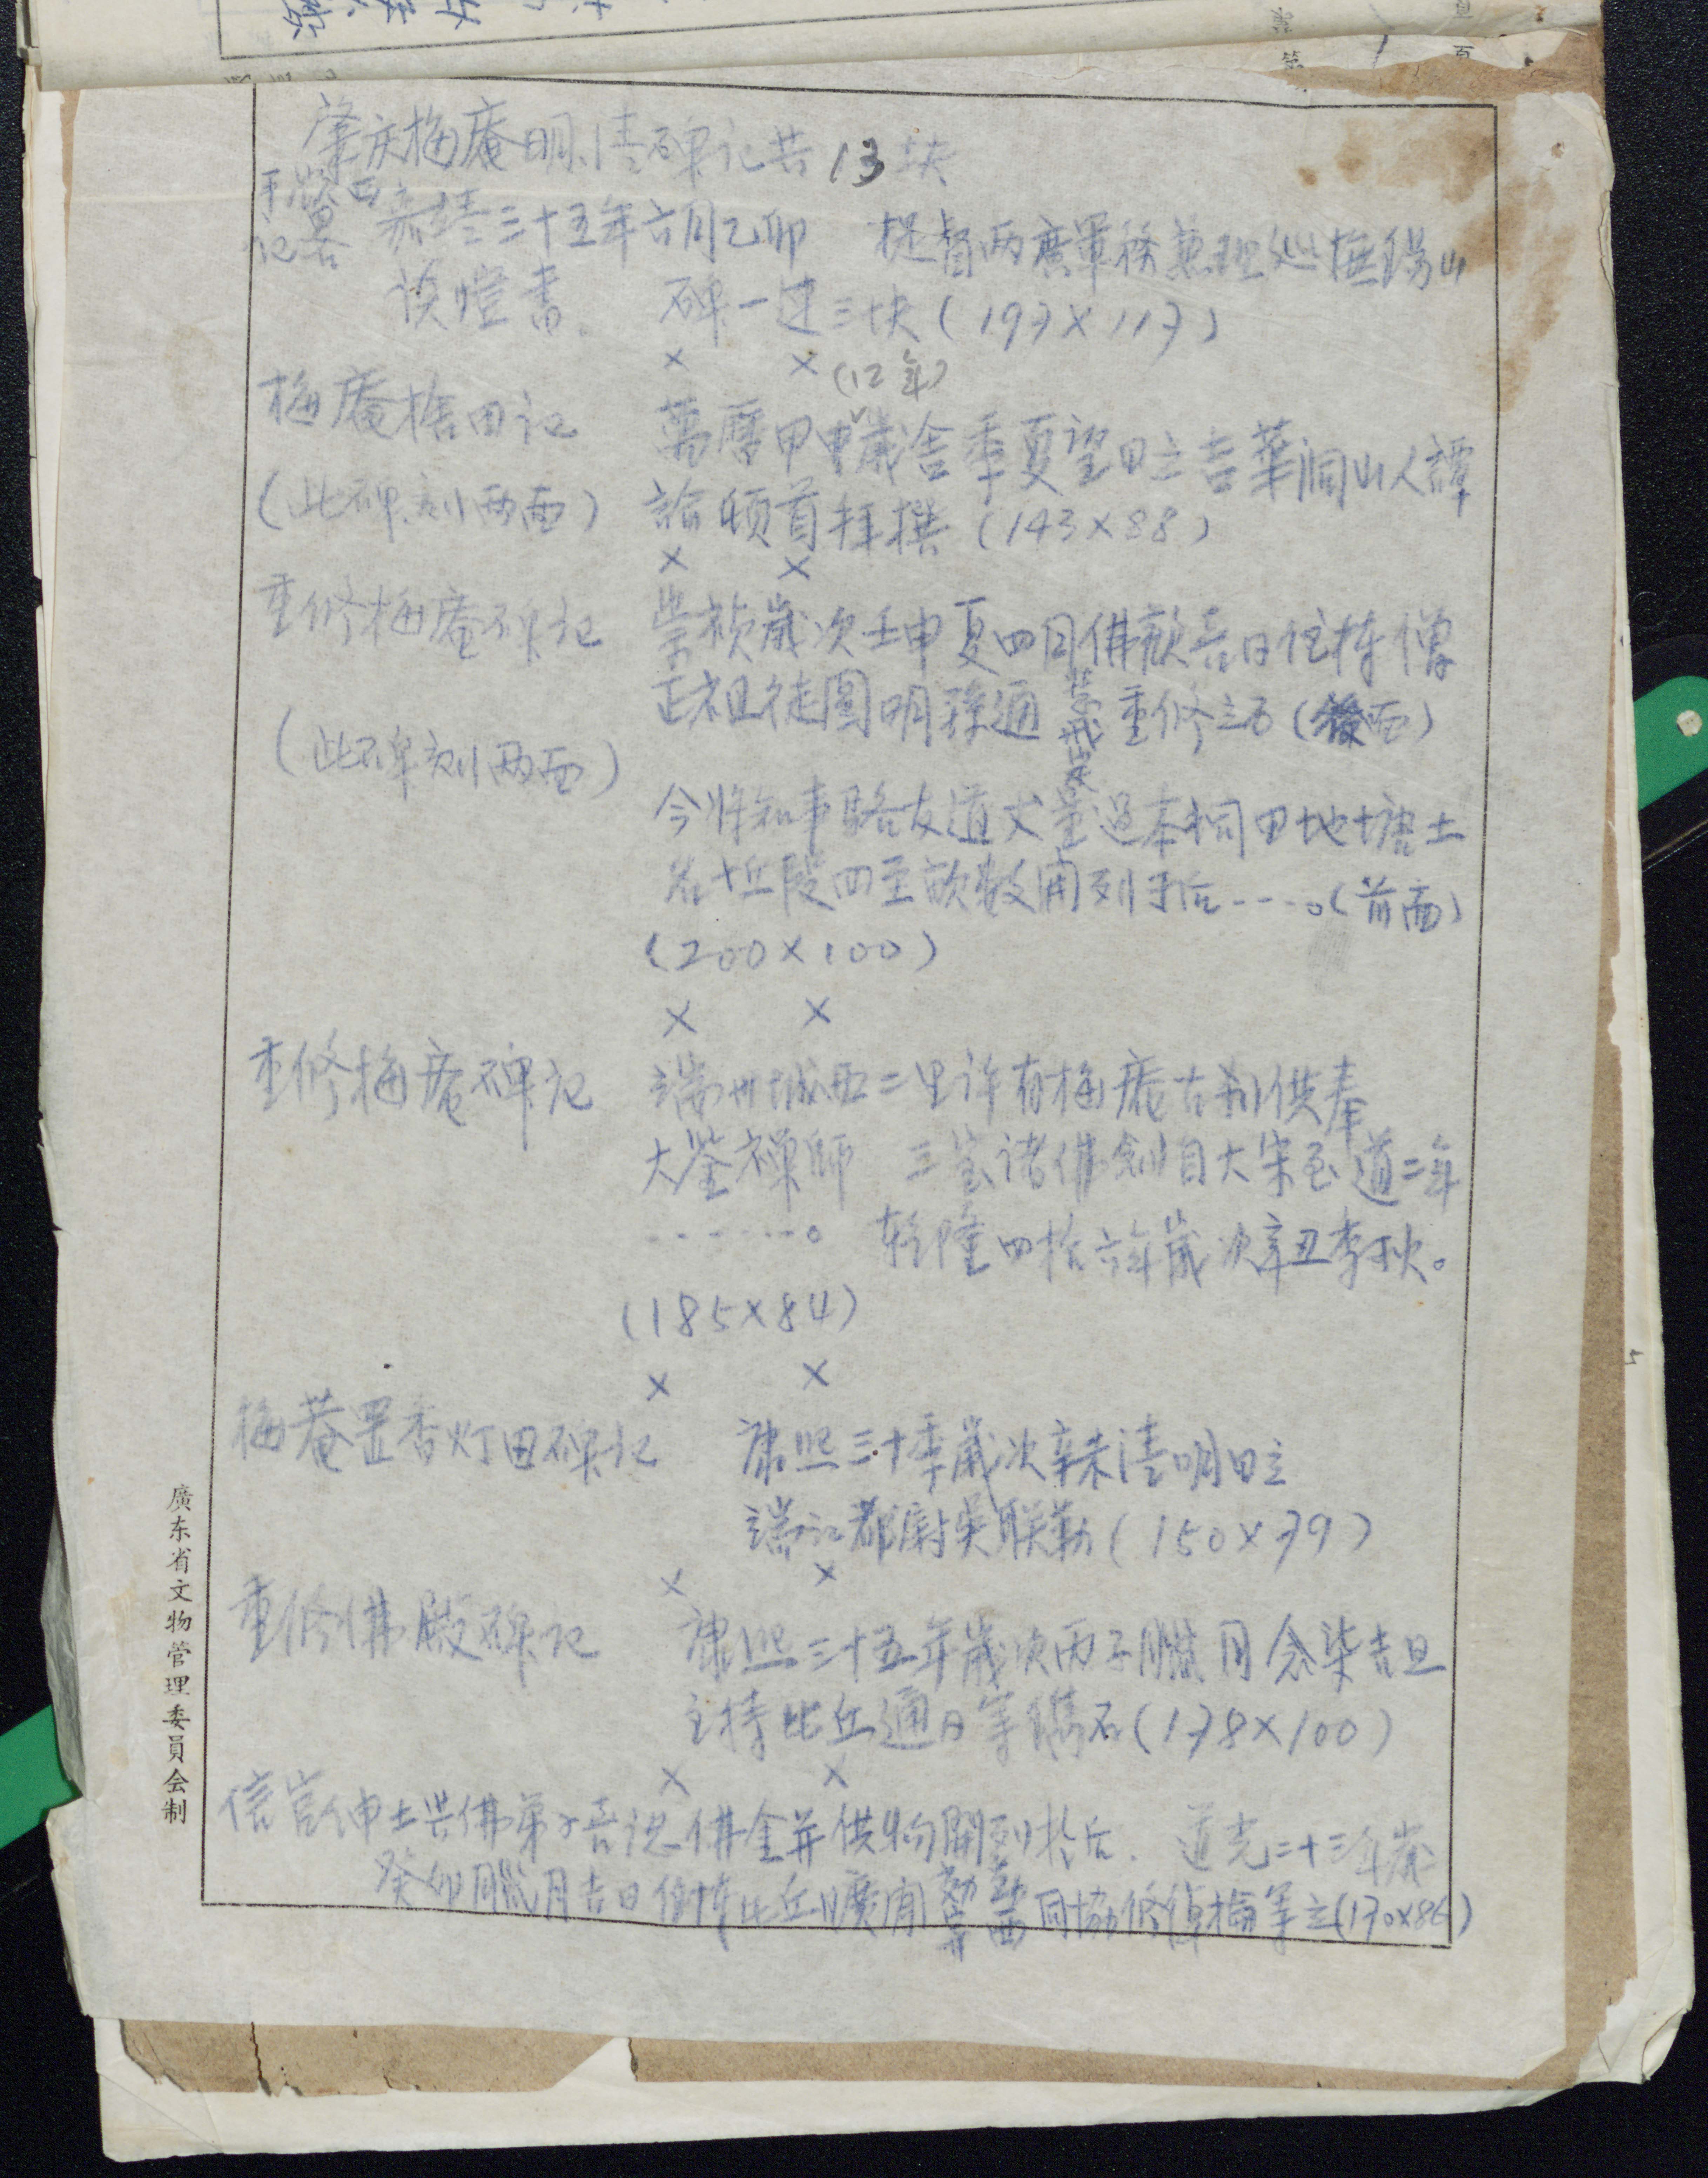 肇庆梅庵明、清碑记共13块
平嶺西
記畧 嘉靖三十五年六月乙卯 提督两廣軍務兼理巡撫錫山
談愷書、 碑一边三块(197×117)
× ×
(12年)
梅庵捨田记 萬曆甲申歲舍季夏望日立吉華洞山人譚
(此碑刻两面) 諭頓首拜撰(143×88)
× ×
重修梅庵碑記 崇禎歲次壬申夏四月佛歡喜日住持僧
正祖徒圓明 通 重修立石(後面)
(此碑刻两面)
今將知事駱友道丈量過本祠田地塘土
名坵段四至畝数開列于后----。(前面)
(200×100)
× ×
重修梅庵碑記 端州城西二里许有梅庵古刹供奉
大鉴禅師 三宝诸佛創自大宋至道二年
-------。 乾隆四拾六年歲次辛丑季秋。
(185×84)
× ×
梅菴置香灯田碑记 康熙三十季歲次辛未清明日立
端江都尉吴联勒(150×79)
× ×
重修佛殿碑记 康熙三十五年歲次丙子臘月念柒吉旦
主持比丘通日等鐫石(178×100)
× ×
信官绅士共佛弟子喜认佛金并供物開列於后、 道光二十三年歲
癸卯腊月吉日住持比丘曠開 同協修 梅等立(170×86)
廣东省文物管理委員会制